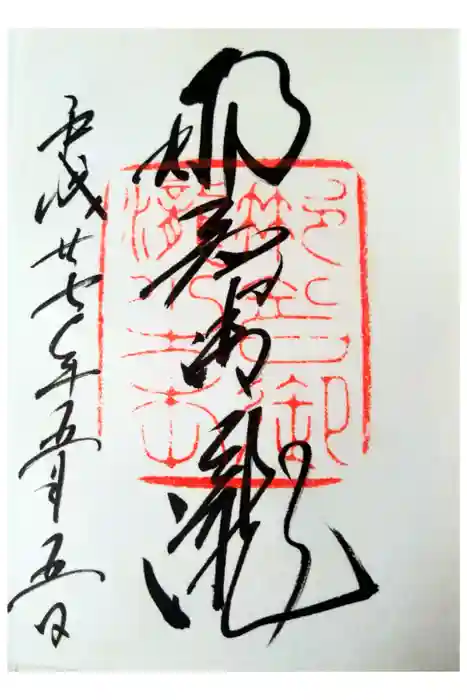 那智御瀧
平成廿七年五月五日